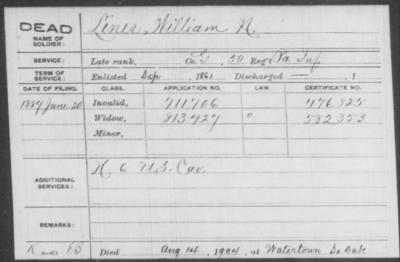 DEAD
NAME OF SOLDIER:
Lines, William N.
SERVICE:
Late rank, Co. G, 50 Reg't Pa Inf
TERM OF SERVICE:
Enlisted Sep, 1861 Discharged —, 1
DATE OF FILING. CLASS. APPLICATION NO. LAW. CERTIFICATE NO.
1889 June 20 Invalid, 711706 476325
Widow, 813427 " 582353
Minor,
ADDITIONAL SERVICES:
H 6 U.S. Cav.
REMARKS:
Died Aug 14, 1904, at Watertown So Dak